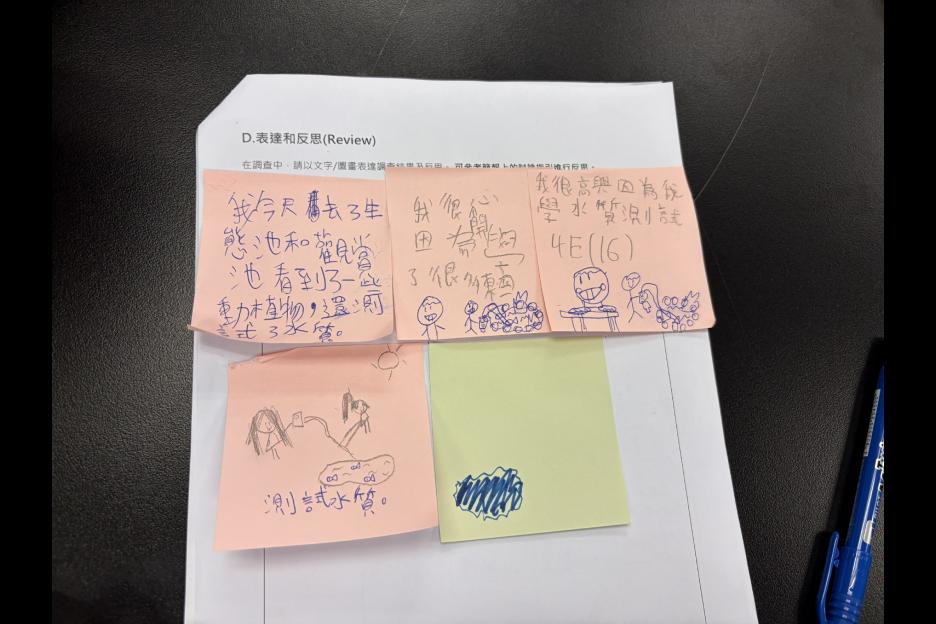 D.表達和反思(Review)
在調查中，請以文字/圖畫表達調查結果及反思。可參考簡報上的討論指引進行反思。
我今天去了生
態池和觀賞
池看到了一些
動植物，還測
試了水質。
我很開心
因為
了很多東西
我很高興因為我
學水質測試
4E(16)
測試水質。